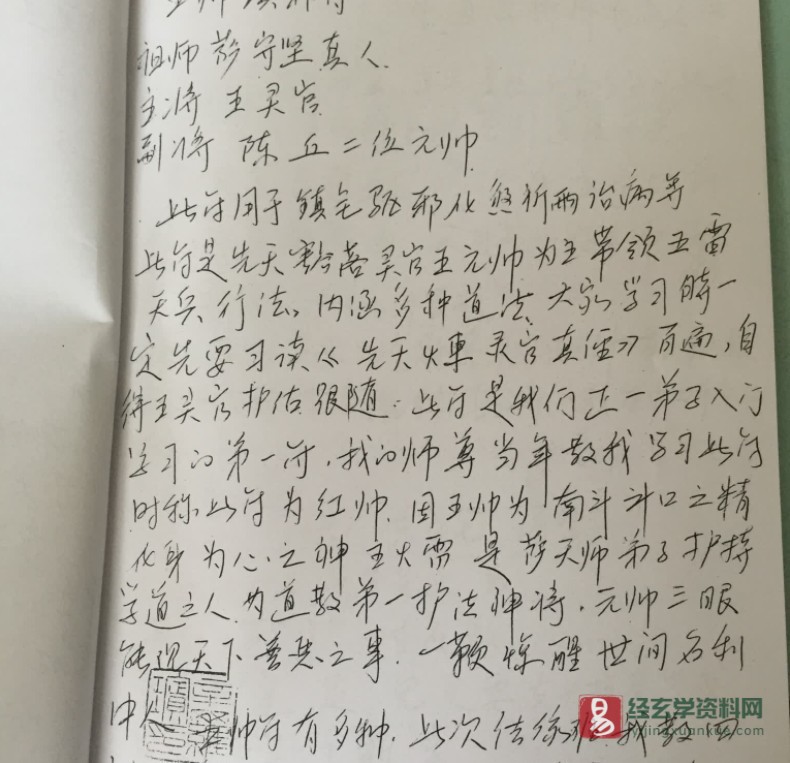 祖师萨守坚真人
主将 王灵官
副将 陈 丘二位元帅
此符用于镇宅驱邪化煞祈雨治病等
此符是先天豁落灵官王元帅为主带领五雷
天兵行法。内涵多种道法。大家学习时一
定先要习读《先天火車灵官真经》百遍,自
得王灵官护佑跟随.此符是我们正一弟子入门
学习的第一符.我的师尊当年教我学习此符
时称此符为红帅.因王帅为南斗斗口之精
化身为心之神主火雷是萨天师弟子护持
学道之人为道教第一护法神将.元帅三眼
能观天下善恶之事.一鞭惊醒世间名利
中人.帅符有多种.此次传我教
易
经玄学资料网
yijingxuankue.com